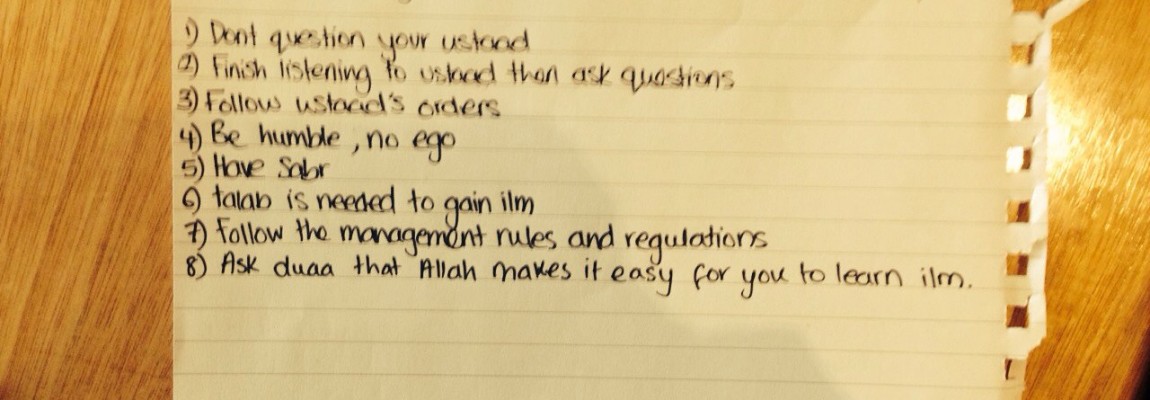 1) Dont question your ustaad
2) Finish listening to ustaad then ask questions
3) Follow ustaad's orders
4) Be humble, no ego
5) Have Sabr
6) talab is needed to gain ilm
7) Follow the management rules and regulations
8) Ask duaa that Allah makes it easy for you to learn ilm.